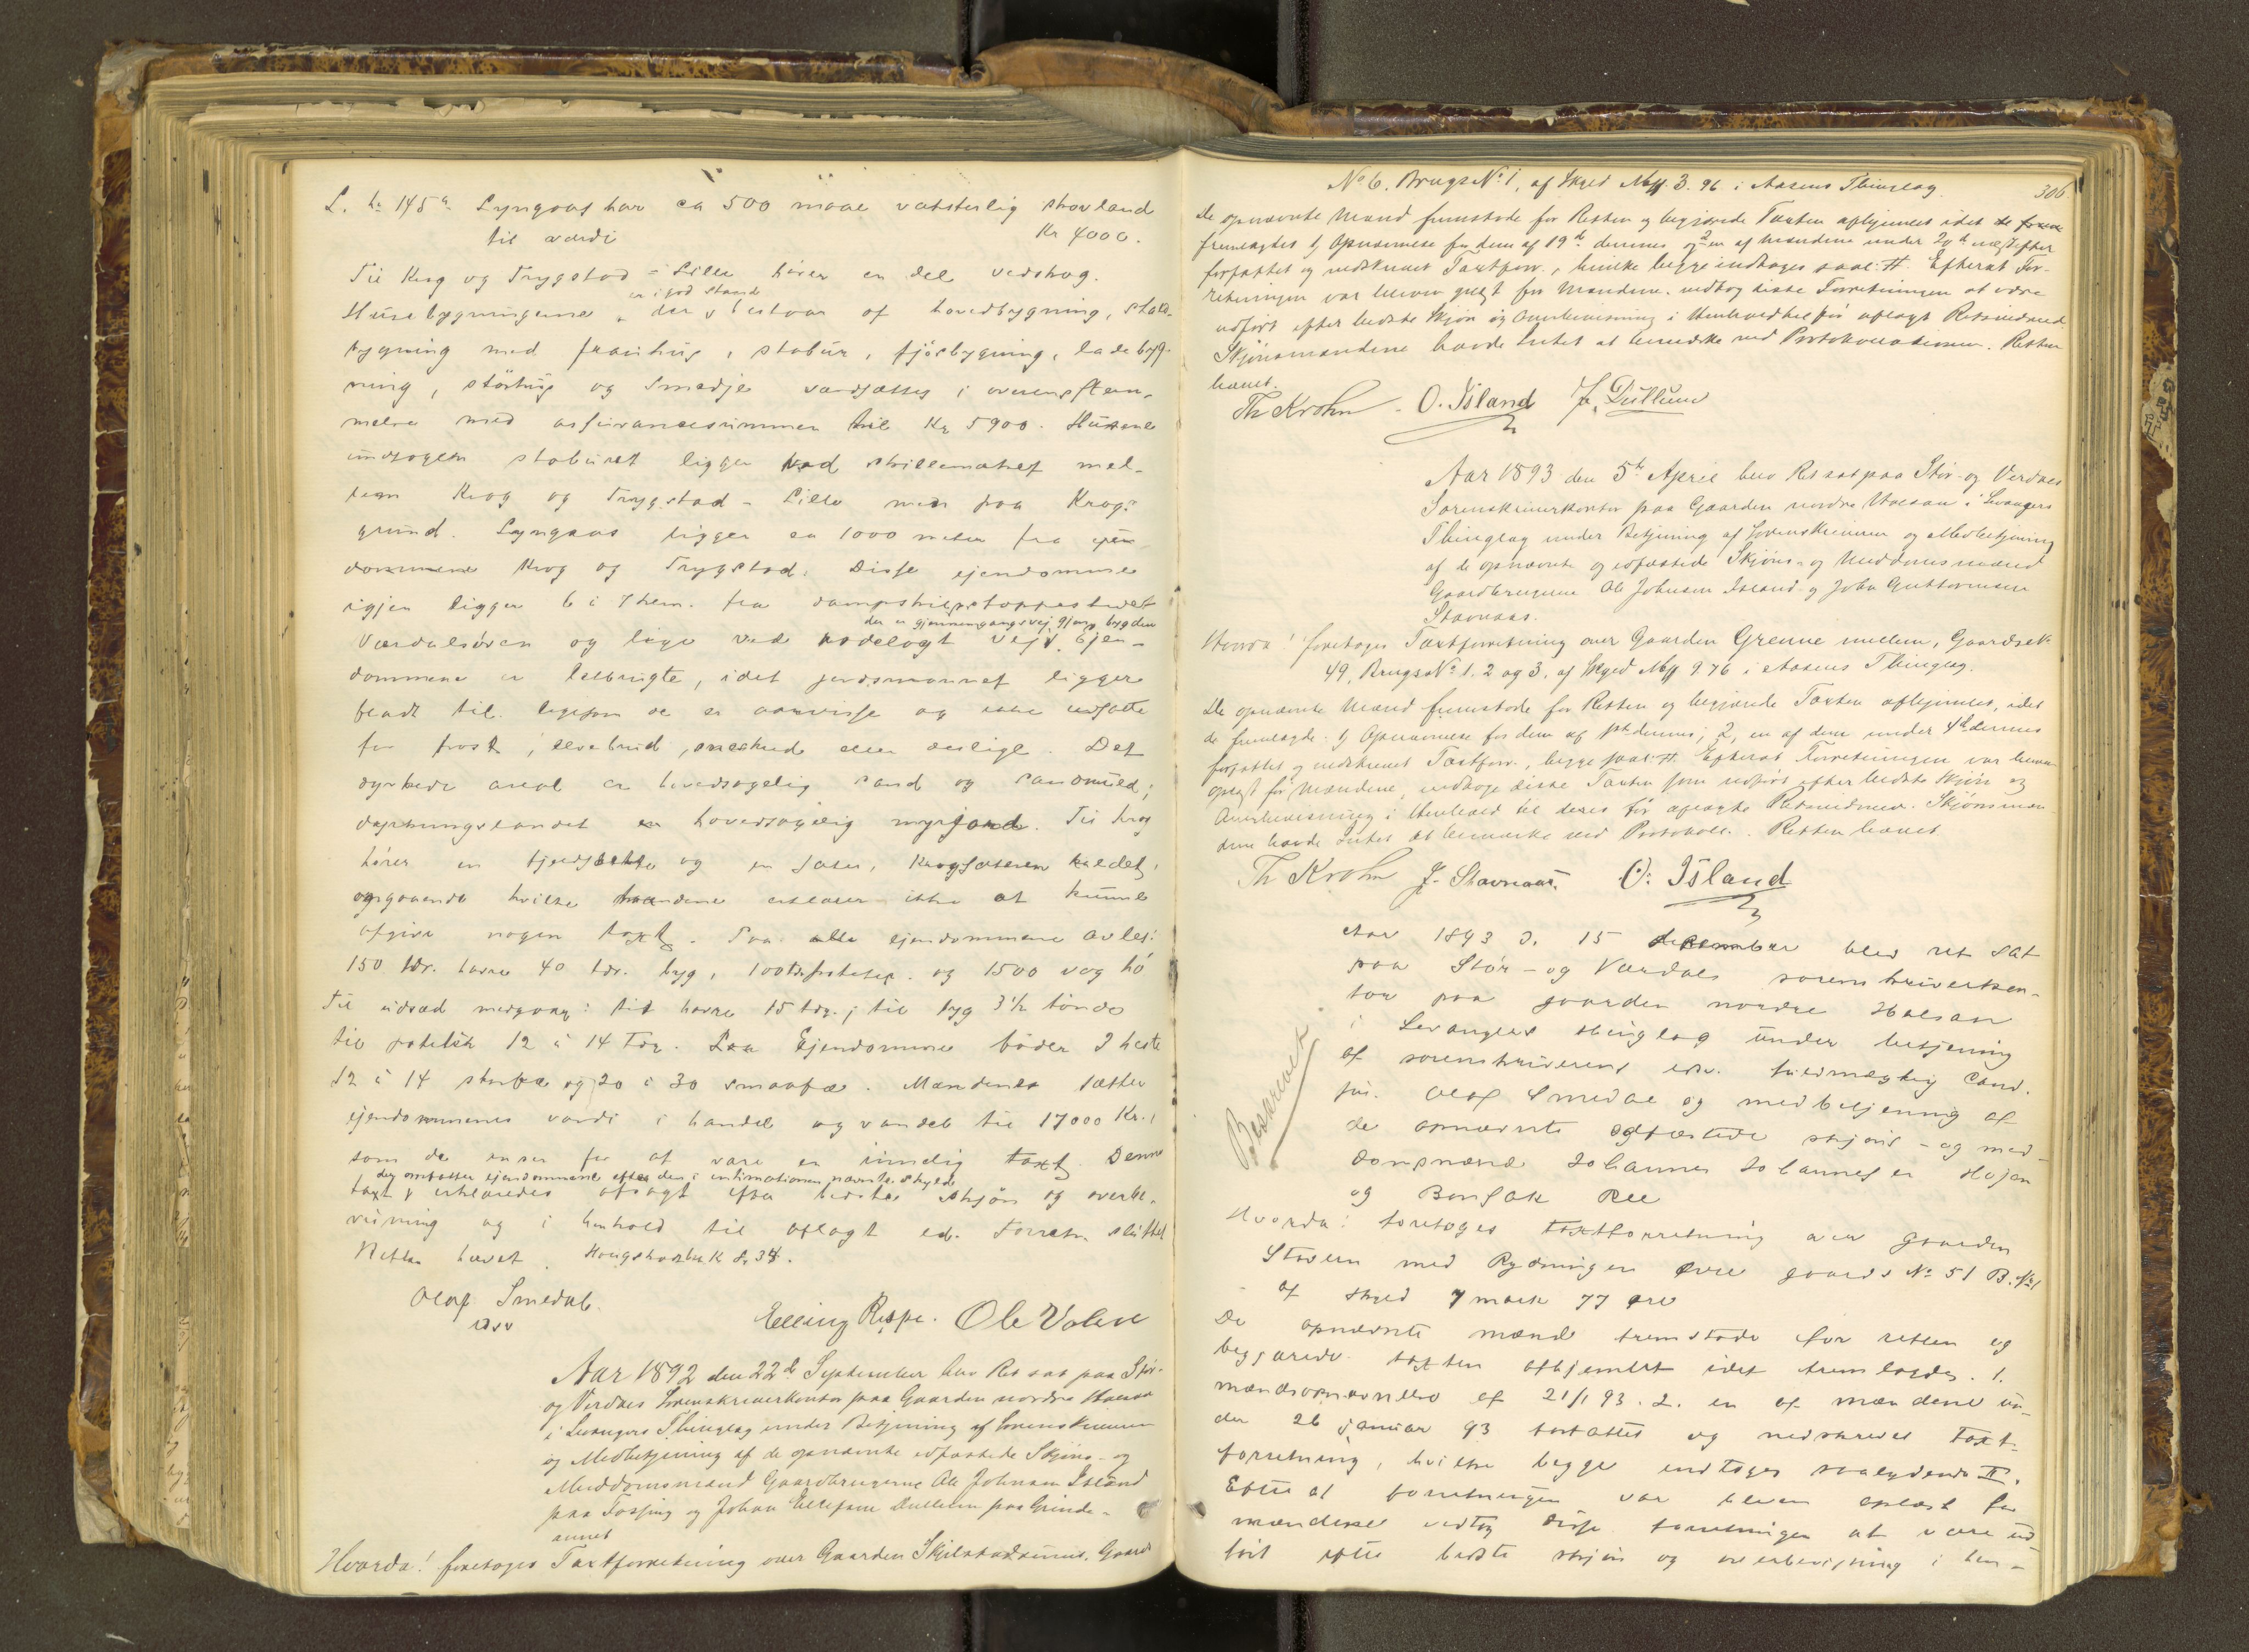 L. No 145a Lyngaas har ca 500 maal vatsterlig skovland
til værdi Kr 4000.
Til Krog og Trygstad - Lille hører en del vedskog.
Husebygningerne er i god stand der bestaar af hovedbygning, stald-
bygning med framhus, stabur, fjøsbygning, ladebyg-
ning, störhus og smedje værdsættes i overensstem-
melse med assurancesummen til Kr 5900. Husene
undtagen staburet ligger ved skillemærket mel-
lem Krog og Trygstad - Lille men paa Krogs
grund. Lyngaas ligger ca 1000 meter fra ejen-
dommene Krog og Trygstad. Disse ejendomme
igjen ligger 6 à 7 klm. fra dampskipsstoppestedet
Værdalsøren og lige ved rodelagt vej, der er gjennemgangsvej gjen. bygden Ejen-
dommene er letbrugte, idet jordsmonnet ligger
fladt til. ligesom de er aarvisse og ikke udsatte
for frost, elvebrud, sneskred eller deslige. Det
dyrkede areal er hovedsagelig sand og sandmuld;
dyrkningslandet er hovedsagelig myrjord. Til Krog
hører en fjeldslette og en sæter, Krogsæteren kaldet,
angaaende hvilke mændene erklærer ikke at kunne
afgive nogen taxt. Paa alle ejendommene avles:
150 tdr. havre 40 tdr. byg, 100 tdr. poteter og 1500 vog hö
Til udsæd medgaar: til havre 15 tdr.; til byg 3 1/2 tönde
til poteter 12 à 14 Tdr. Paa Ejendommene föder 2 heste
12 à 14 storfæ og 20 à 30 smaafæ. Mændene sætter
ejendommenes værdi i handel og vandel til 17000 Kr.,
som de anser for at være en rimelig taxt. Denne
taxt, der omfatter ejendommene efter den i intimationen nævnte skyld, erklæredes afsagt efter bedste skjön og overbe-
visning og i henhold til aflagt ed. Forretn. sluttet
Retten hævet.
Olaf Smedal.
Elling Reppe. Ole Volen
Aar 1892 den 22de September blev Ret sat paa Stör-
og Værdals Sorenskriverkontor paa Gaarden nordre Halsan
i Levangers Thinglag under Betjening af Sorenskriveren
og Medbetjening af de opnævnte edfæstede Skjöns- og
Meddomsmænd Gaardbrugerne Ole Johnsen Island
paa Fossing og Johan Ellefsen Dullum paa Grinde-
annet
Hvorda! foretoges Taxtforretning over Gaarden Skjelstadsunet, Gaards
306
No 6. Brugs No 1, af Skyld Mk 3. 96 i Aasens Thinglag.
De opnævnte Mænd fremstode for Retten og begjærede Taxten afhjemlet idet de
fremlagdes 1) Opnævnelse for dem af 19de dennes og 2 en af Mændene under 20de næstefter
forfattet og nedskrevet Taxtforr., hvilke begge indtages saal: #. Efterat For-
retningen var bleven oplæst for Mændene, vedtog disse Forretningen at være
udført efter bedste Skjøn og Overbevisning i Henhold til før aflagt Retsmed
Skjönsmændene havde Intet at bemærke ved Protokollationen. Retten
hævet.
Th Krohn O. Island J. Dullum
Aar 1893 den 5te April blev Ret sat paa Stör- og Værdals
Sorenskriverkontor paa Gaarden nordre Halsan i Levangers
Thinglag under Betjening af Sorenskriveren og Medbetjening
af de opnævnte og edfæstede Skjöns- og Meddomsmænd
Gaardbrugerne Ole Johnsen Island og John Guttormsen
Stavnaas.
Hvorda! foretoges Taxtforretning over Gaarden Grenne mellem, Gaards No
49, Brugs No 1. 2 og 3, af Skyld Mk 9.76 i Aasens Thinglag.
De opnævnte Mænd fremstode for Retten og begjærede Taxten afhjemlet, idet
de fremlagde: 1) Opnævnelse for dem af 1ste dennes, 2, en af dem under 4de dennes
forfattet og nedskrevet Taxtforr., begge saal: #. Efterat Forretningen var bleven
oplæst for Mændene, vedtoge disse Taxten som udført efter bedste Skjön og
Overbevisning i Henhold til deres för aflagte Retsed. Skjönsmæn-
dene havde Intet at bemærke ved Protokoll. Retten hævet
Th Krohn J. Stavnaas. O. Island
Aar 1893 d. 15 december blev ret sat
paa Stör- og Værdals sorenskriverkon-
tor paa gaarden nordre Halsan
i Levangers thinglag under betjening
af sorenskriverens edsv. fuldmægtig cand.
jur. Olaf Smedal og medbetjening af
de opnævnte edfæstede skjöns- og med-
domsmænd Johannes Johannessen Hojem
og Bonsak Ree
Beskrevet
Hvorda! foretoges taxtforretning over gaarden
Stavern med Rydningen övre gaards No 51 B. No 1
af skyld 7 mark 77 öre
De opnævnte mænd fremstode for retten og
begjærede taxten afhjemlet idet fremlagdes. 1.
mændsopnævnelse af 21/1 93. 2. en af mændene un-
der 26 januar 93 forfattet og nedskrevet taxt-
forretning, hvilke begge indtages saalydende #.
Efterat forretningen var bleven oplæst for
mændene vedtog disse forretningen at være ud-
fört efter bedste skjön og overbevisning i hen-